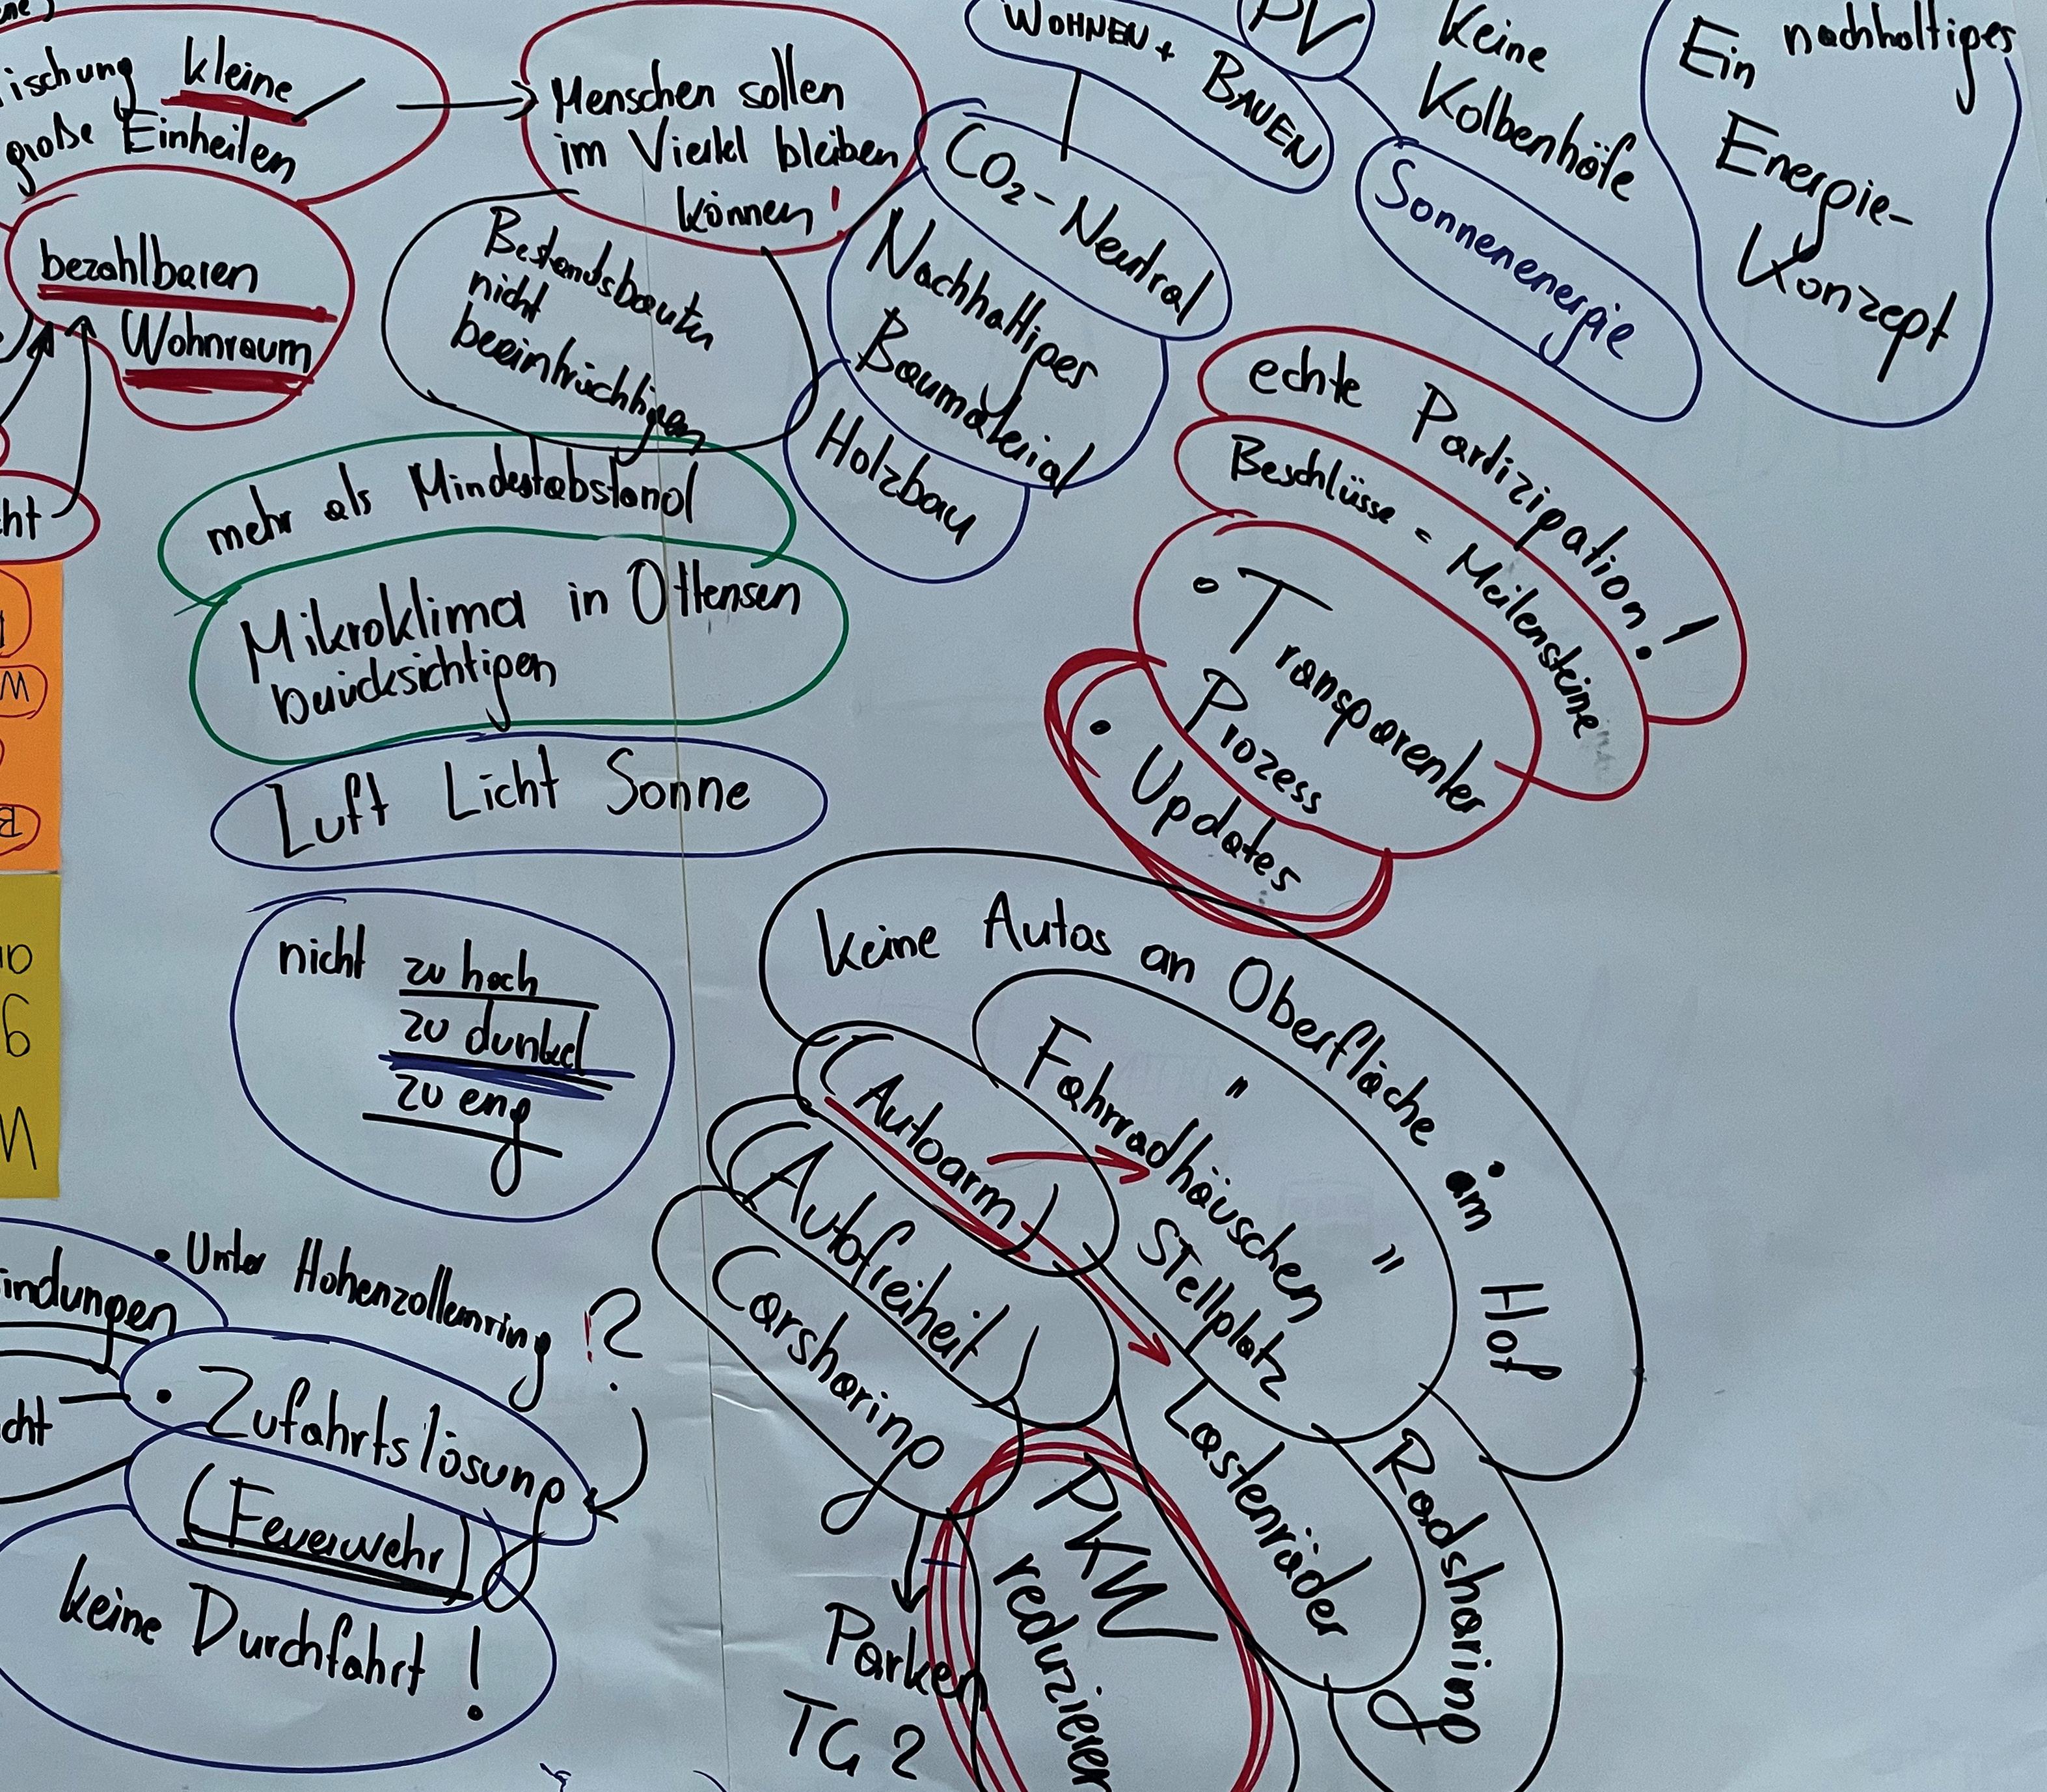 kleine
große Einheiten
bezahlbaren
Wohnraum
Menschen sollen
im Viertel bleiben
können!
Bestandsbauten
nicht
beeinträchtigen
WOHNEN +
BAUEN
PV
CO₂-Neutral
Nachhaltiges
Baumaterial
Holzbau
Keine
Kolbenhöfe
Sonnenenergie
Ein nachhaltiges
Energie-
Konzept
mehr als Mindestabstand
Mikroklima in Ottensen
berücksichtigen
Luft Licht Sonne
nicht zu hoch
zu dunkel
zu eng
echte Partizipation!
Beschlüsse = Meilensteine
• Transparenter
Prozess
• Updates
keine Autos an Oberfläche im Hof
Fahrradhäuschen " "
Stellplatz
(Autoarm)
(Autofreiheit)
Carsharing
Parken
TG ?
PKW
reduzieren
Lastenräder
Radsharing
• Unter Hohenzollernring !?
• Zufahrtslösung
(Feuerwehr)
keine Durchfahrt!